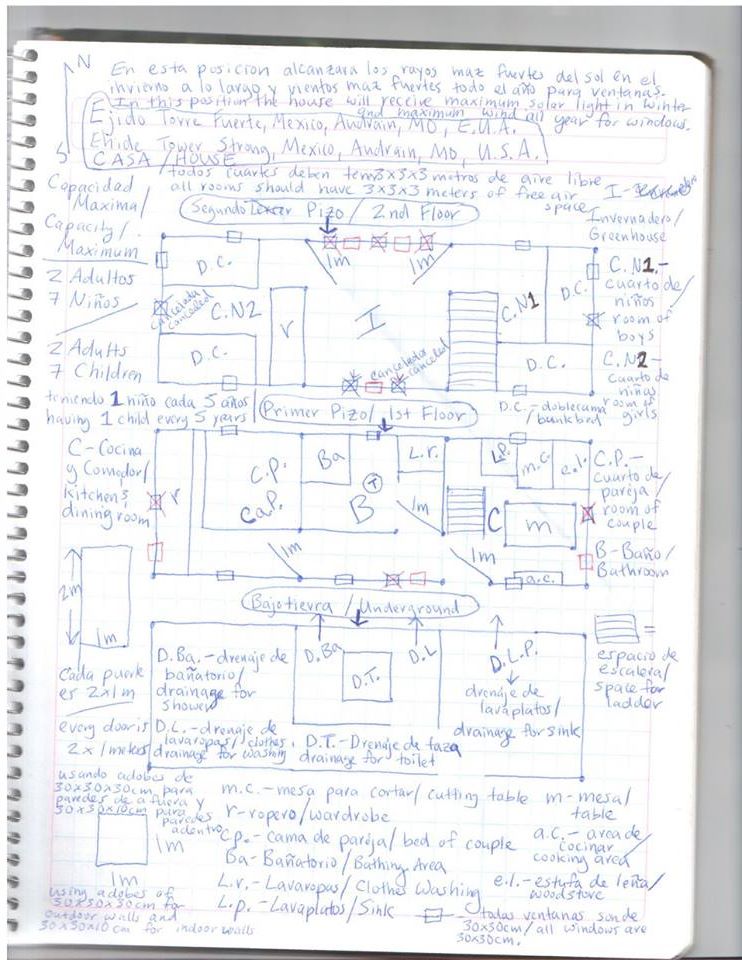 N
En esta posicion alcanzara los rayos maz fuertes del sol en el
invierno a lo largo y vientos maz fuertes todo el año para ventanas.
In this position the house will receive maximum solar light in winter
and maximum wind all year for windows.
S
Ejido Torre Fuerte, Mexico, Audrain, MO, E.U.A.
Ehide Tower Strong, Mexico, Audrain, MO, U.S.A.
CASA / HOUSE
todos cuartes deben tem 3x3x3 metros de aire libre
all rooms should have 3x3x3 meters of free air
space
Capacidad
Maxima/
Capacity/
Maximum
2 Adultos
7 Niños
2 Adults
7 Children
teniendo 1 niño cada 5 años/
having 1 child every 5 years
Segundo Pizo / 2nd Floor
I -
Invernadero/
Greenhouse
C.N1.-
cuarto de
niños/
room of
boys
C.N2-
cuarto de
niñas/
room of
girls
D.C.
1m
1m
cancelada
canceled
C.N2
r
I
C.N1
D.C.
D.C.
cancelados
canceled
D.C.
D.C. - doblecama
/bunkbed
Primer Pizo/ 1st Floor
C-Cocina
y Comedor/
Kitchen &
dining room
r
C.P.
Ca.P.
Ba
T
B
L.r.
1m
L.P.
m.c.
e.l.
C
m
1m
1m
a.c.
C.P.-
cuarto de
pareja/
room of
couple
B-Baño/
Bathroom
2m
1m
cada puerte
es 2x1m
every door is
2x1meters
Bajotierra / Underground
D.Ba
D.T.
D.L
D.L.P.
drenaje de
lavaplatos/
drainage for sink
D.Ba.-drenaje de
bañatorio/
drainage for
shower
D.L.-drenaje de
lavaropas/clothes
drainage for washing
D.T.-Drenaje de taza
drainage for toilet
=
espacio de
escalera/
space for
ladder
usando adobes de
30x30x30cm para
paredes de afuera y
30x30x10cm para
paredes
adentro
1m
1m
using adobes of
30x30x30cm for
outdoor walls and
30x30x10 cm for indoor walls
m.c.-mesa para cortar/ cutting table
r-ropero/wardrobe
C.p.-cama de pareja/ bed of couple
Ba-Bañatorio/Bathing Area
L.r.-Lavaropas/ Clothes Washing
L.p.-Lavaplatos/Sink
m-mesa/
table
a.c.-area de
cocinar
cooking area
e.l.-estufa de leña/
woodstove
-todas ventanas son de
30x30cm/all windows are
30x30cm.